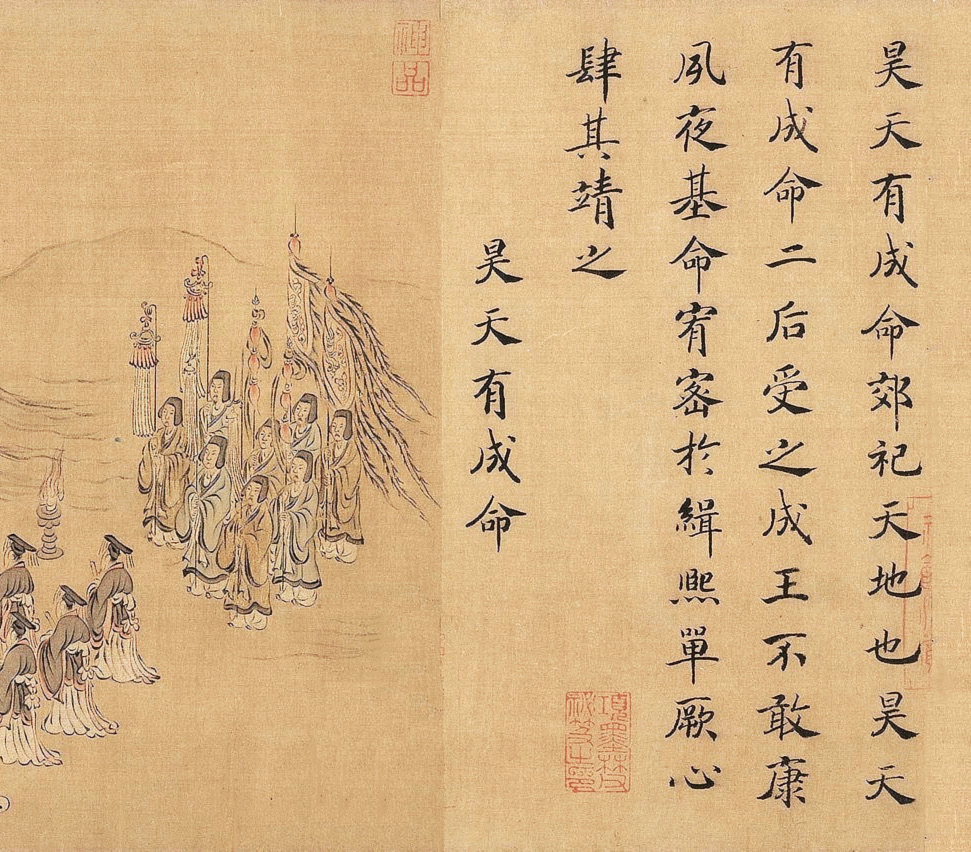 昊天有成命郊祀天地也昊天
有成命二后受之成王不敢康
夙夜基命宥密於緝熙單厥心
肆其靖之
昊天有成命
項墨林父
祕笈之印
神品